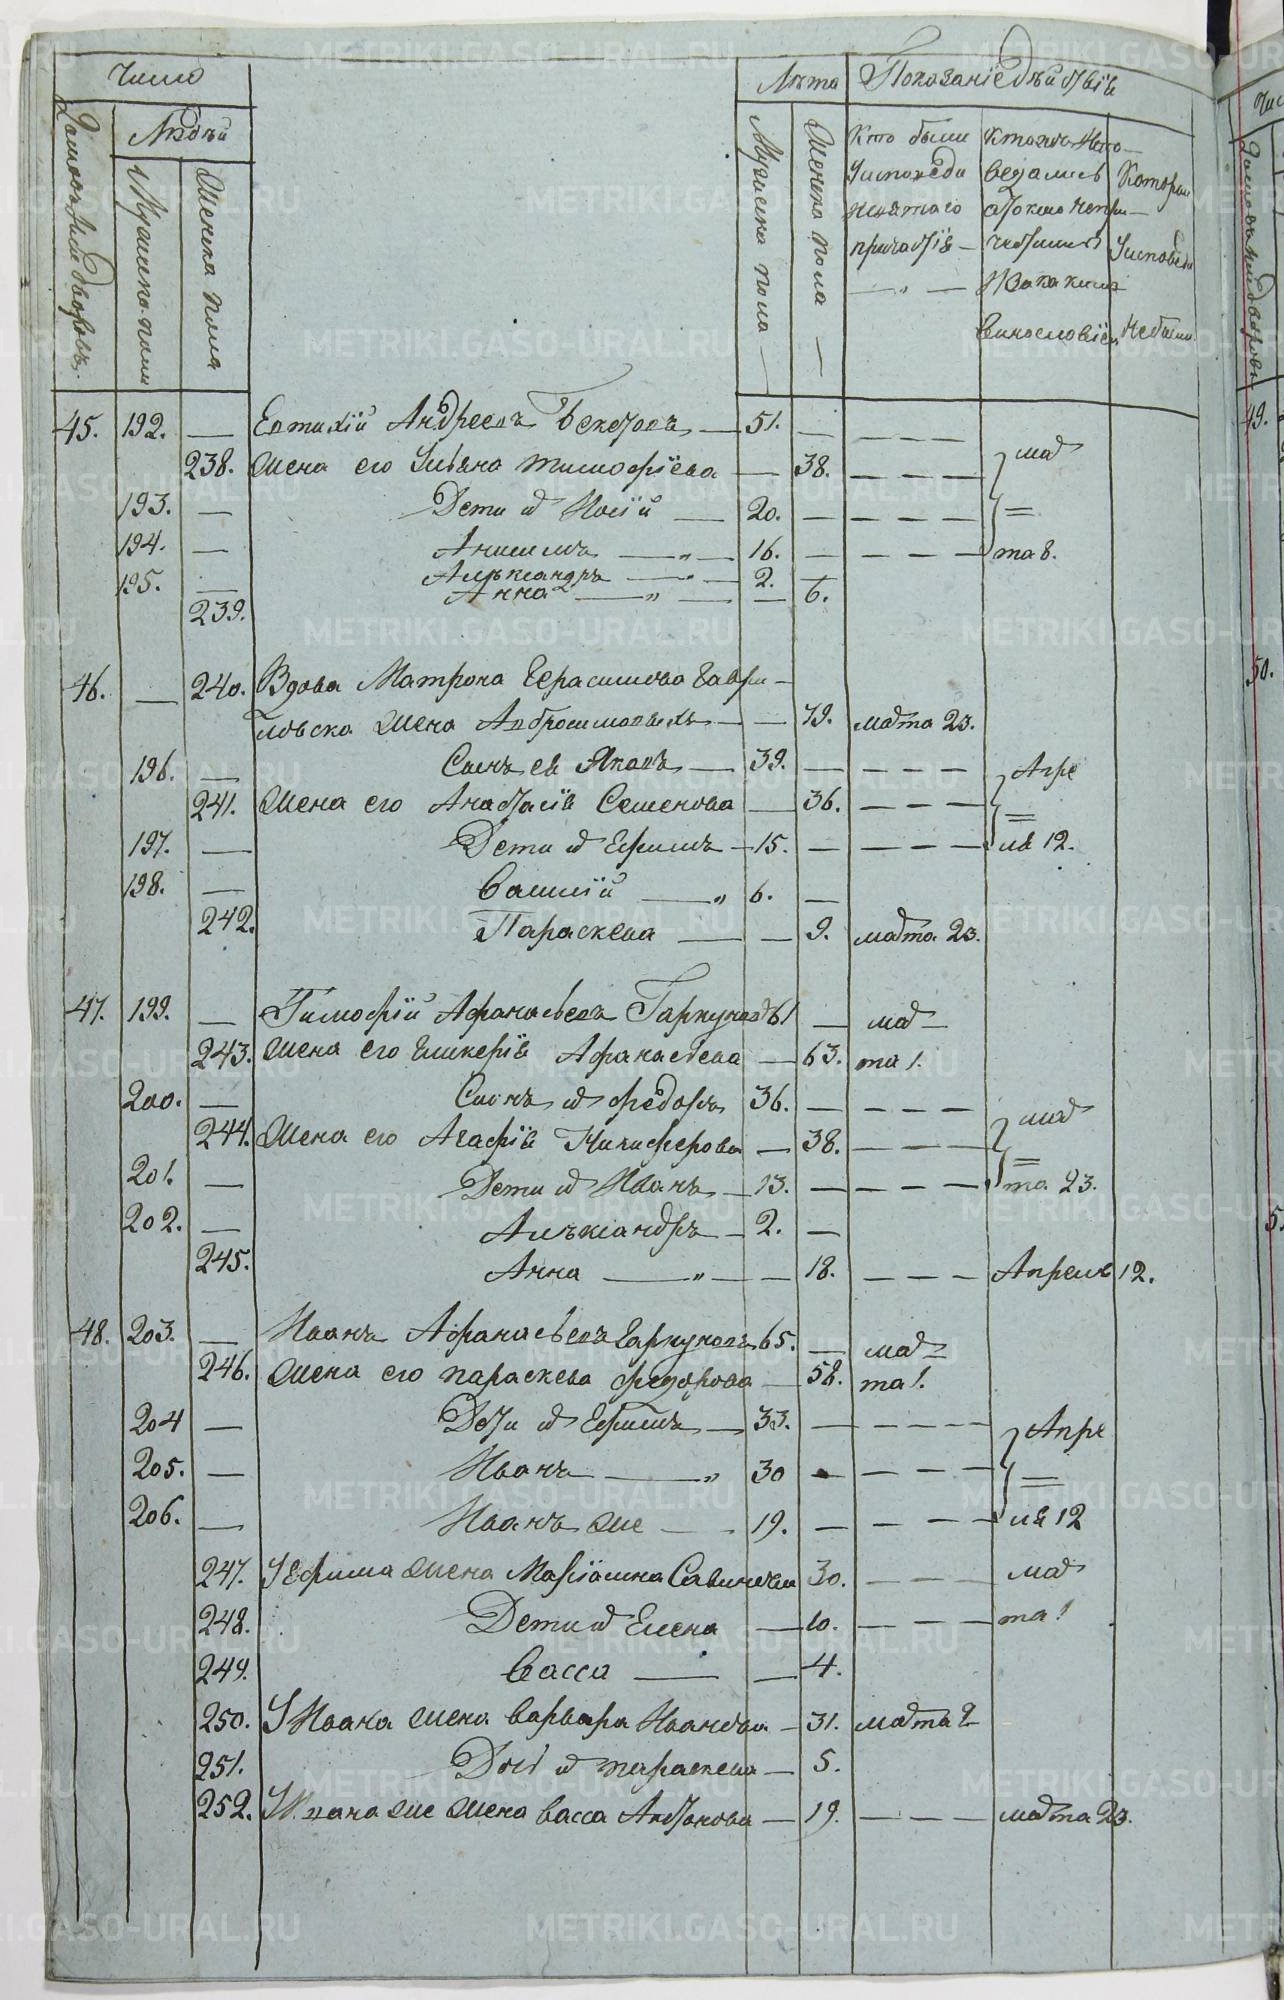 Число
Лѣта
Показанїе дѣйствїя
Домовъ или дворовъ.
Людѣй
Мужеска пола
Женска пола
Мужеска пола
Женска пола
Кто были
Исповѣди
и святаго
причастїя
Кто же испо-
ведались
а токмо непри-
частились
и за какимъ
винословїем
Которые
Исповеди
не были
45. 192. — Евтихїй Андреевъ — 51. —
238. Жена его Ульяна тимофїева — 38. мар
193. — Дети их — 20. —
194. — Анисимъ — 16. — та 8.
195. — Алѣксандръ — 2. —
239. Анна — 6.
46. — 240. Вдова Матрона Герасимова Гаври-
ловска жена Абросимовыхъ — 79. марта 23.
196. — Сынъ ея Яковъ — 39. — Апре
241. Жена его Анастасїя Семенова — 36.
197. — Дети их Ефимъ — 15. — ля 12.
198. — Василїй — 6. —
242. Параскева — 9. марта 23.
47. 199. — Тимофїй Афанасьевъ Гаркуновъ 61 — мар-
243. Жена его Гликерїя Афанасьева — 63. та 1.
200. — Сынъ их Федоръ 36. — мар
244. Жена его Агафїя Никифорова — 38.
201. — Дети их Иванъ — 13. — та 23.
202. — Алѣксандръ — 2. —
245. Анна — 18. Апреля 12.
48. 203. — Иванъ Афанасьевъ Гаркуновъ 65. — мар-
246. Жена его параскева федорова — 58. та 1.
204 — Дети их Ефимъ — 33. — Апре
205. — Иванъ — 30 —
206. — Иванъ же — 19. — ля 12
247. У Ефима жена Марїамна 30. мар
248. Дети их Елена — 10. та 1
249. Васса — 4.
250. У Ивана жена Варвара Иванова — 31. марта 2
251. Дочь их параскева — 5.
252. У Ивана же жена Васса Антонова — 19. марта 23.
49.
50.
METRIKI.GASO-URAL.RU